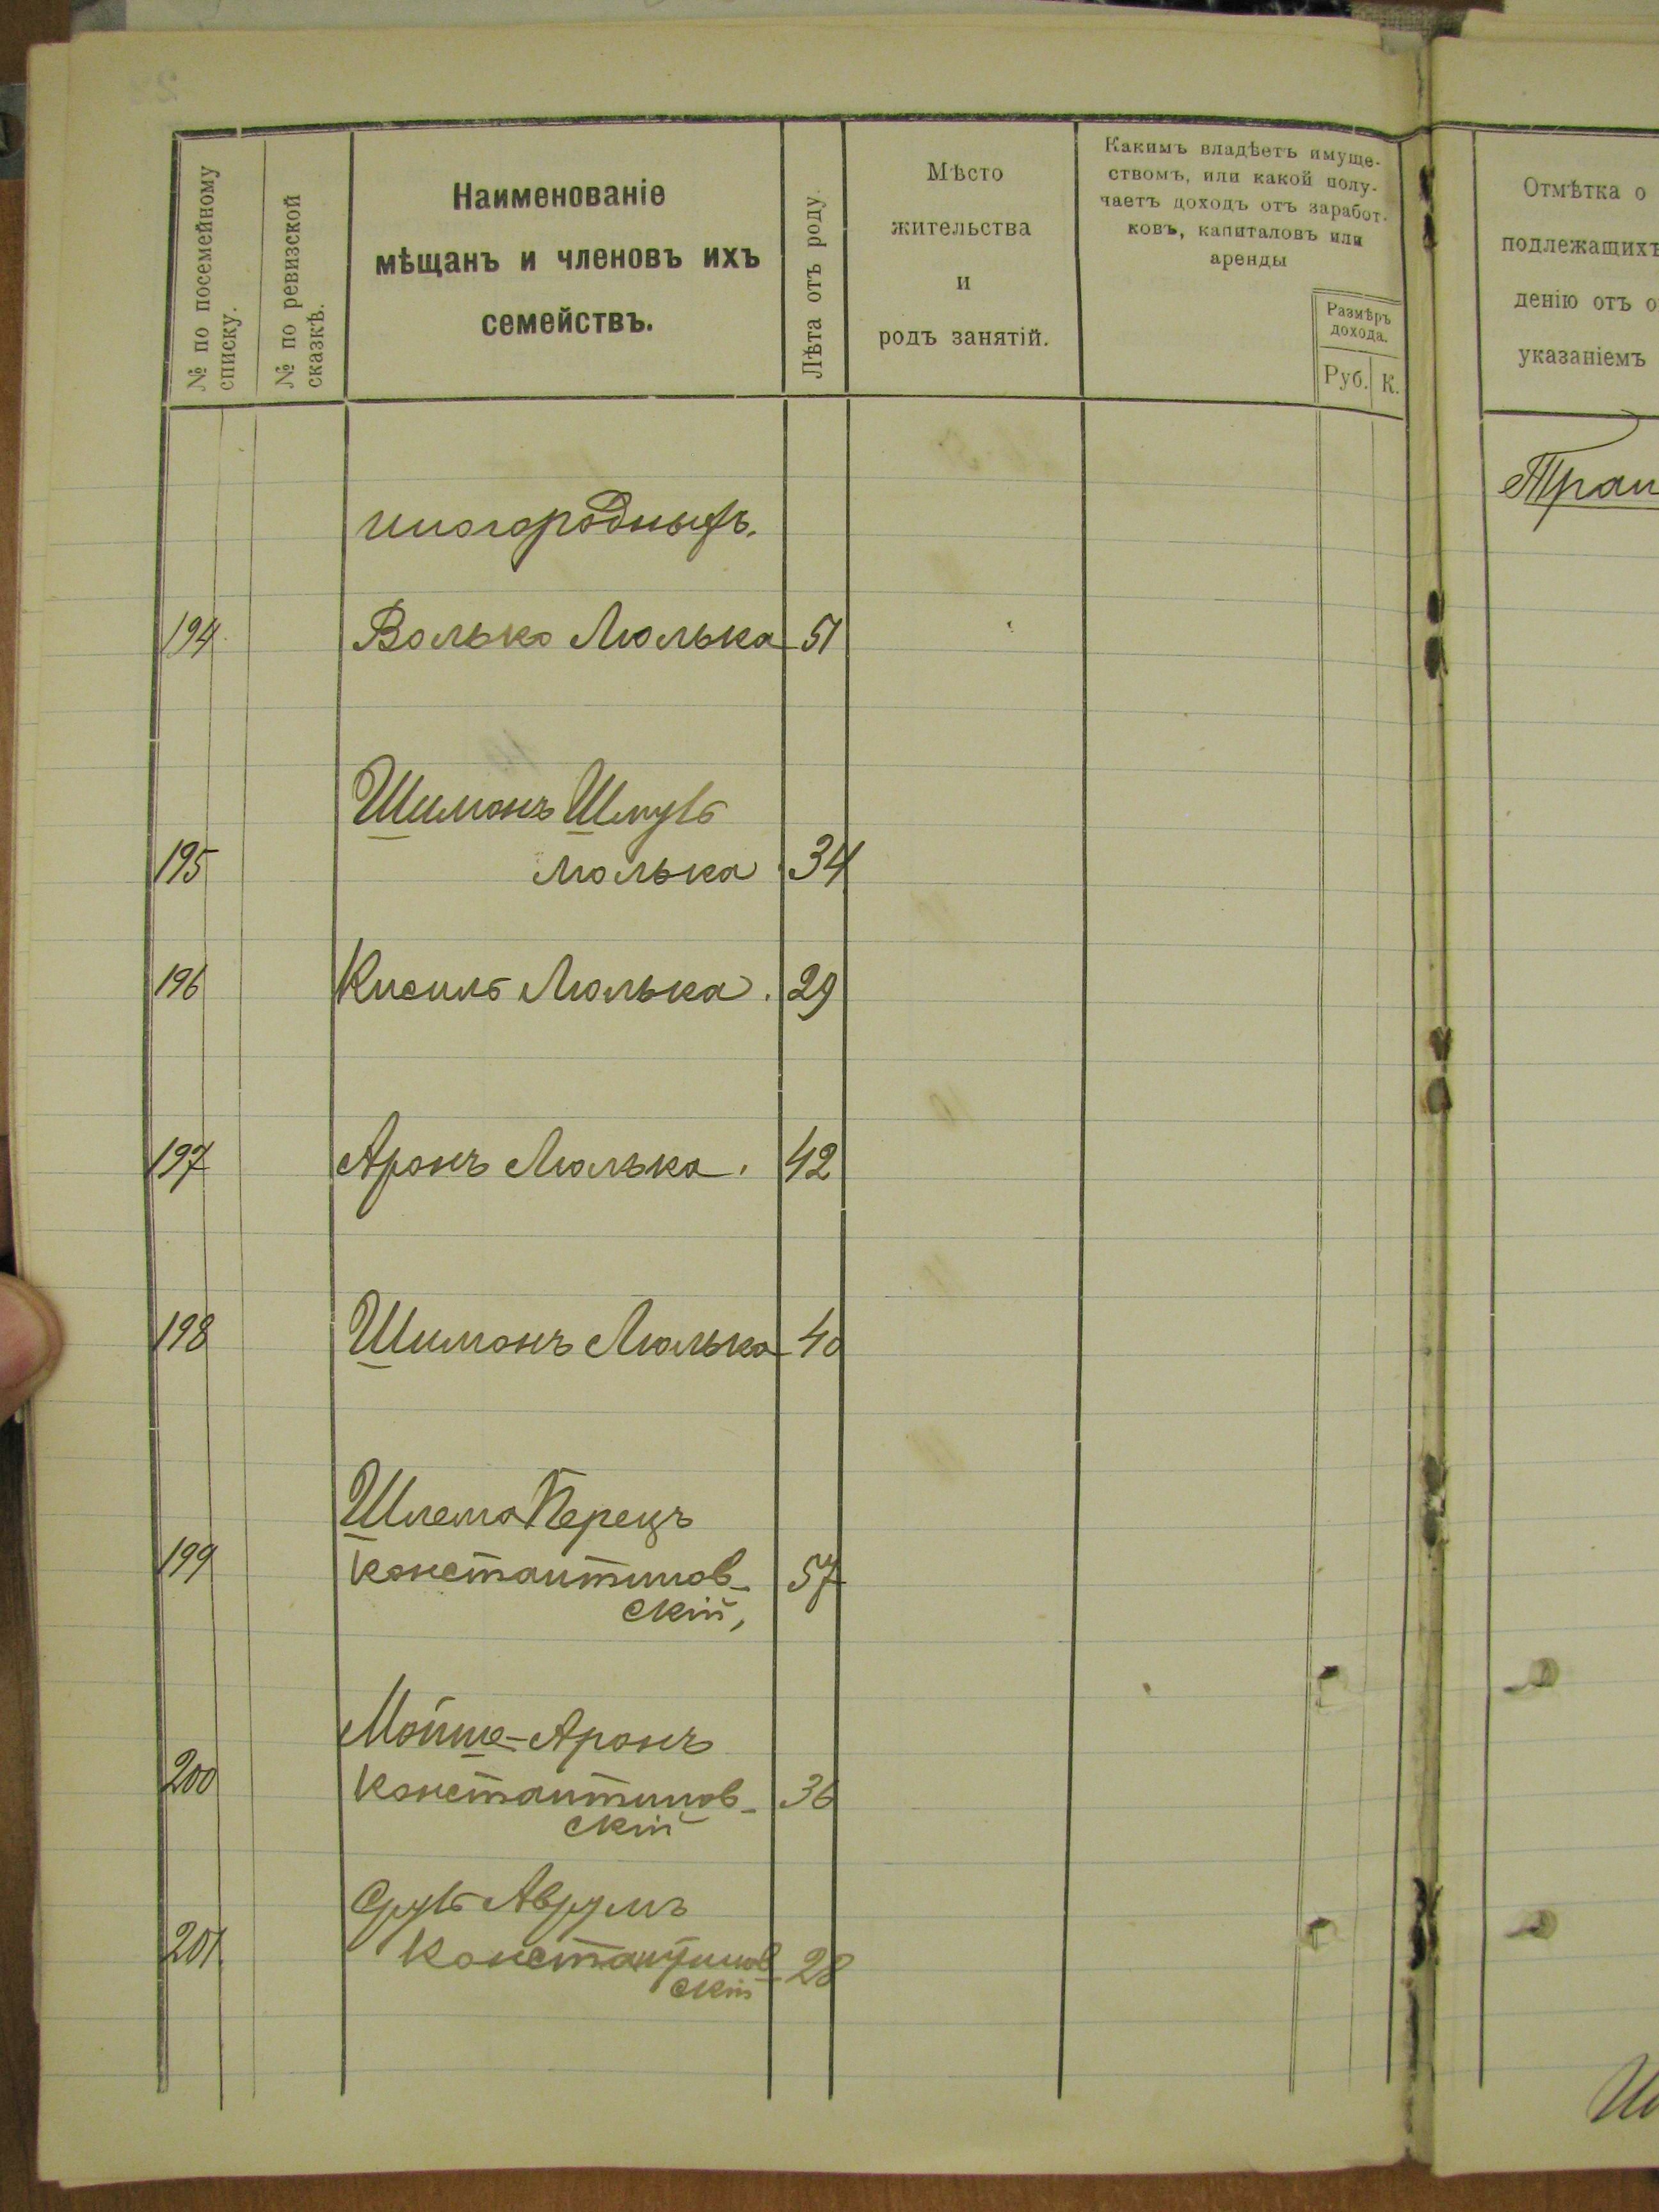 № по посемейному
списку.
№ по ревизской
сказкѣ.
Наименованіе
мѣщанъ и членовъ ихъ
семействъ.
Лѣта отъ роду.
Мѣсто
жительства
и
родъ занятій.
Какимъ владѣетъ имуще-
ствомъ, или какой полу-
чаетъ доходъ отъ заработ-
ковъ, капиталовъ или
аренды
Размѣръ
дохода.
Руб. К.
Отмѣтка о
подлежащихъ
денію отъ о
указаніемъ
иногородныхъ.
194 Волько Люлька 51
Шимонъ Шмуль
195 Люлька 34
196 Кисиль Люлька. 29
197 Аронъ Люлька. 42
198 Шимонъ Люлька 40
Шлема Перецъ
199 Константинов- 57
скій,
Мойше-Аронъ
200 Константинов- 36
скій
Сруль Аврумъ
201 Константинов 28
скій